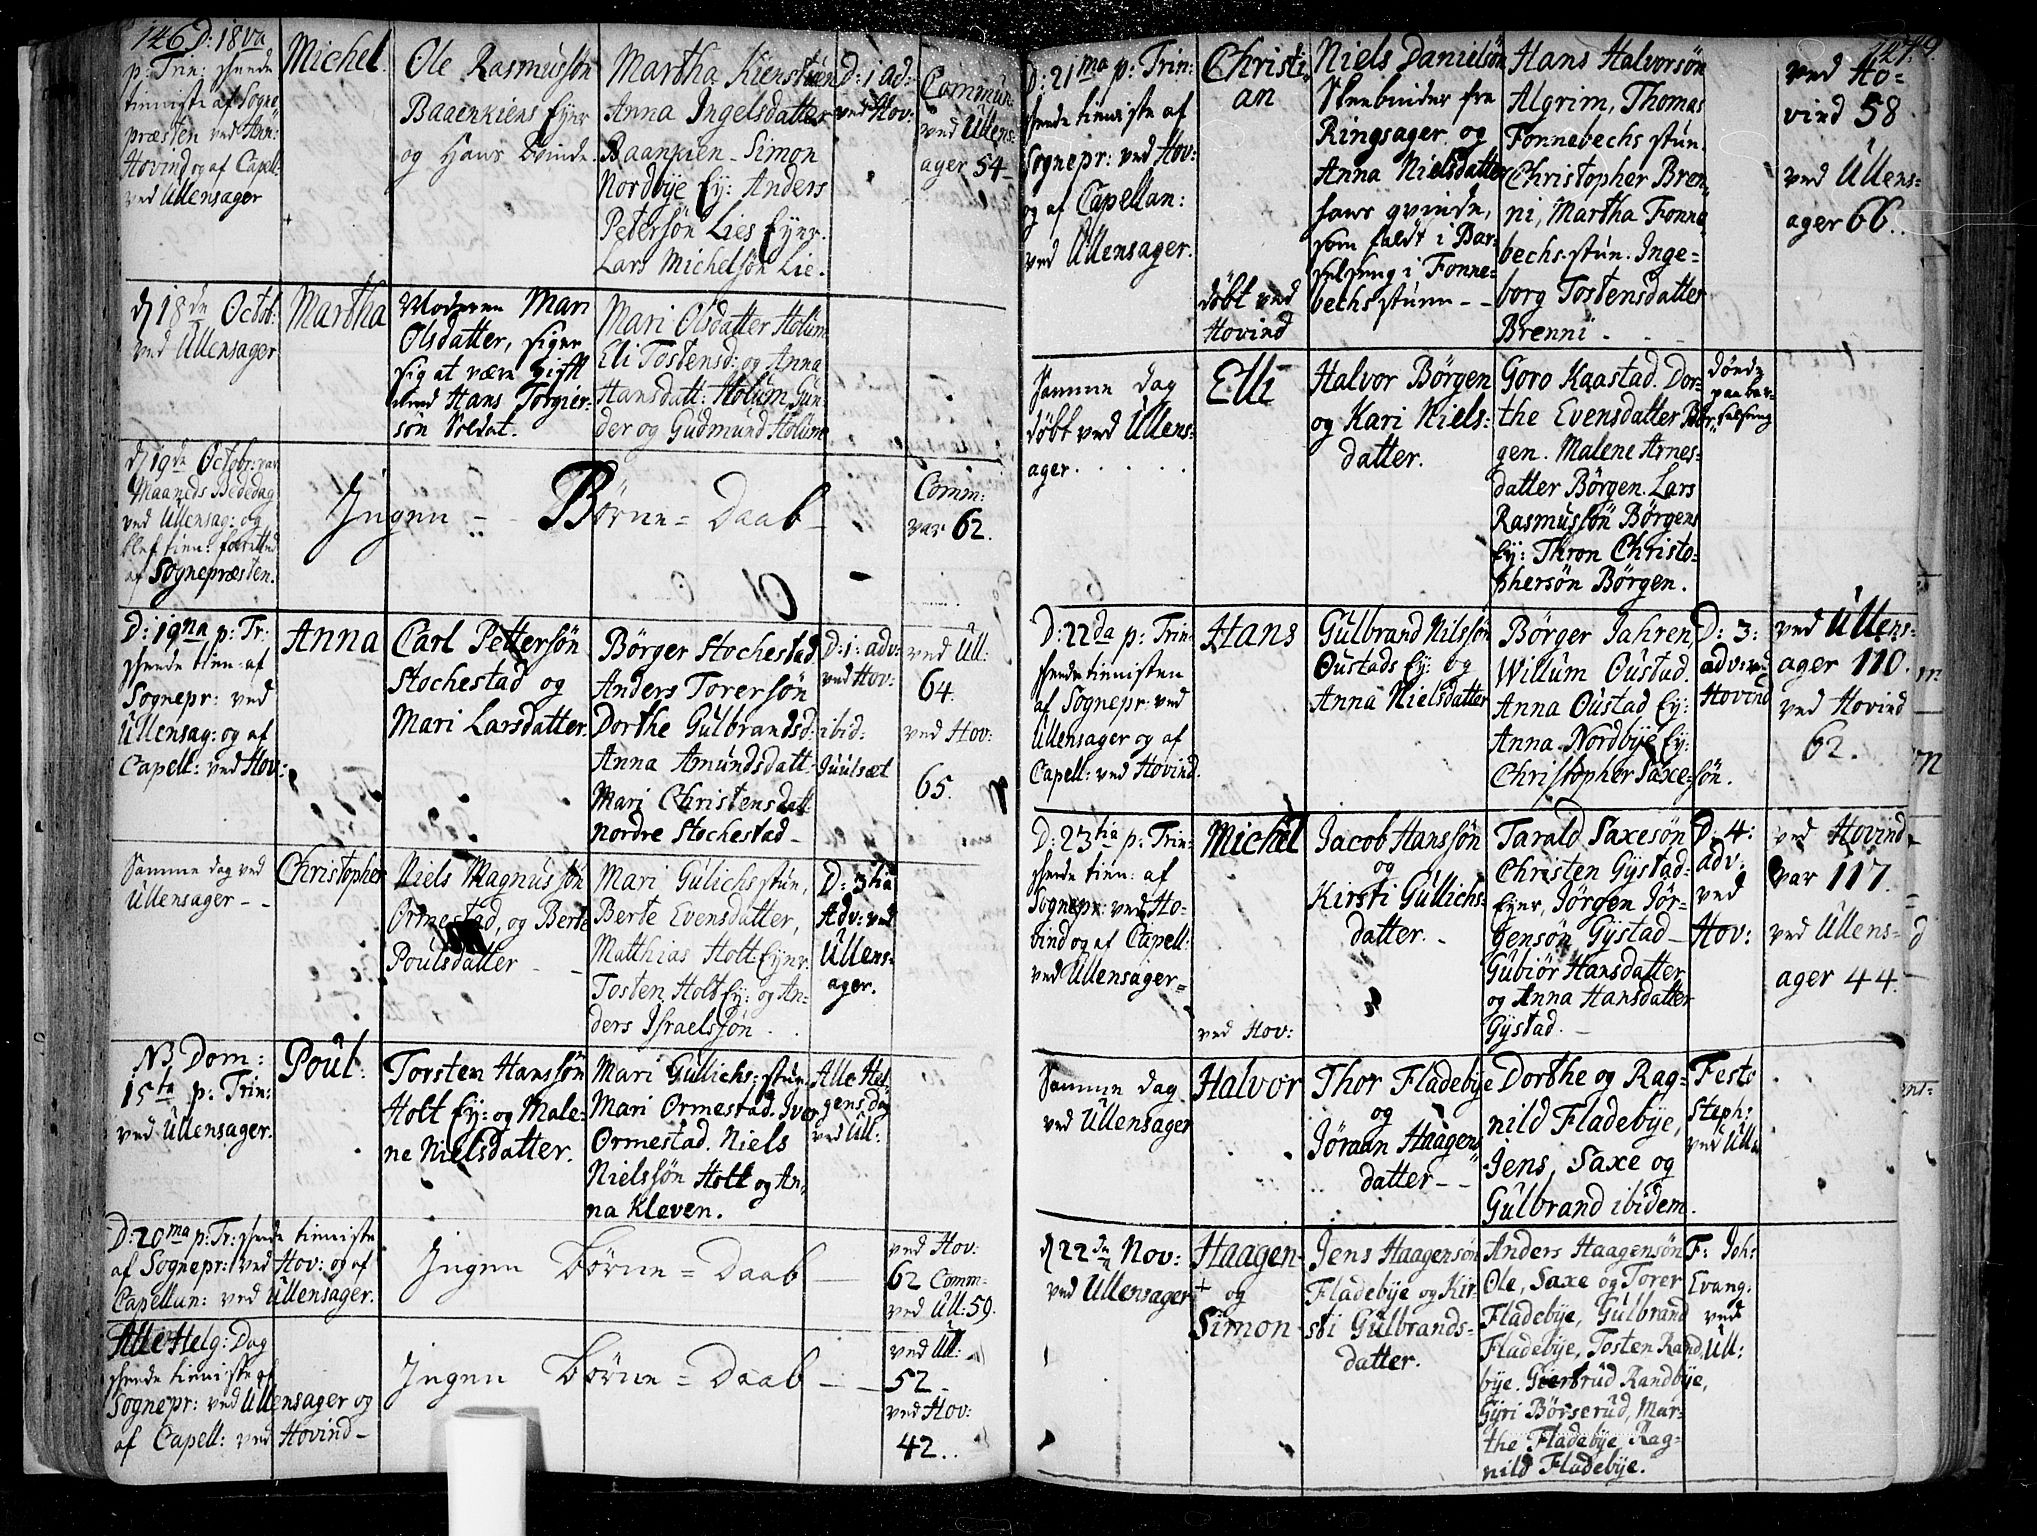 146
D: 18va
p: Trin: skeede
tienniste af Sogne
præsten ved
Hovind og af Capell:
ved Ullensager
Michel.
Ole Rasmussøn
Baaenkiens Eyer
og Hans Qvinde
Martha Kienstuen
Anna Ingelsdatter
Baankien - Simon
Nordbÿe Eÿ: Anders
Petersøn Lies Eÿer.
Lars Michelsøn Lie.
D: 1 ad:
ved Hov:
Commun:
ved Ullens:
ager 54
d 18de Octob:
ved Ullensager
Martha
Moderen Mari
Olsdatter, siger
sig at være gifft
med Hans Torgier-
søn Soldat.
Mari Olsdatter Holum
Eli Tostensd: og Anna
Hansdatt: Holum, Gun-
der og Gudmund Holum
d 19de Octobr: var
Maaneds Bededag
ved Ullensag: og
blef tien: forretted
af Sognepræsten.
Ingen - - Børne = Daab -
Comm:
var 62.
D: 19na p: Tr:
skeede tien: af
Sognepr: ved
Ullensag: og af
Capell: ved Hov:
Anna
Carl Pettersøn
Stochestad og
Mari Larsdatter.
Børger Stochestad
Anders Torersøn
Dorthe Gulbrandsd:
Anna Amundsdatt
Mari Christensdatt
Nordre Stochestad -
D: 1: adv:
ved Hov:
ibid:
Juulsæt
ved Ull:
64.
ved Hov:
65.
Samme dag ved
Ullensager - -
Christopher
Niels Magnussøn
Ormestad, og Berte
Poulsdatter - -
Mari Gulichsstun,
Berte Evensdatter,
Matthias Holt Eyer.
Tosten Holt Eÿ: og An-
ders Israelssøn.
D: 3tia
Adv: ved
Ullens-
ager.
NB Dom:
15ta p: Trin:
ved Ullensager.
Poul.
Torsten Hanssøn
Holt Eÿ: og Male-
ne Nielsdatter.
Mari Gullichs:stun
Mari Ormestad. Iver
Ormestad. Niels
Nielssøn Holt og An-
na Kleven.
Alle Hel-
gens dag
ved Ull:
D: 20ma p: Tr: skeede tienniste
af Sognepr: ved Hov: og af
Capellan: ved Ullensager.
Ingen Børne = Daab —
ved Hov:
62 Comm:
ved Ull: 59.
Alle Helg: Dag
skeede tienniste af
Sognepr: ved Ullensager og
af Capell: ved Hovind -
Ingen Børne = Daab - -
ved Ull:
52 -
ved Hov:
42..
D: 21ma p: Trin:
skeede tienniste af
Sognepr: ved Hov:
og af Capellan:
ved Ullensager.
Christi-
an
døbt ved
Hovind
Niels Danielsøn
Skeebinder fra
Ringsager og
Anna Nielsdatter
hans qvinde,
som faldt i Bar-
selseng i Fonne-
bechsstuen - -
Hans Halvorsøn
Algrim, Thomas
Fonnebechs stun
Christopher Bren-
ni, Martha Fonne
bechs-stun. Inge-
borg Tostensdatter
Brenni.
ved Ho-
vind 58
ved Ullens-
ager 66.
Samme dag
døbt ved Ullens-
ager.....
Elli
Halvor Børgen
og Kari Niels-
datter.
Goro Kaastad. Dor-
the Evensdatter Bør-
gen. Malene Arnes-
datter Børgen. Lars
Rasmussøn Børgens
Eÿ: Thron Christo-
phersøn Børgen.
døde
paa bar-
selseng
D: 22da p: Trin:
skeede tiennisten
af Sognepr: ved
Ullensager og af
Capell: ved Hovind.
Hans
Gulbrand Nilssøn
Oustads Eÿ: og
Anna Nielsdatter
Børger Jahren,
Willum Oustad.
Anna Oustad Eÿ:
Anna Nordbÿe Eÿ:
Christopher Saxe-søn.
D: 3:
adv: ved
Hovind
ved Ullens-
ager 110.
ved Hovind
62.
D: 23tia p: Trin:
skeede tien: af
Sognepr: ved Ho-
vind og af Capell:
ved Ullensager =
Michel
ved Hov:
Jacob Hanssøn
og
Kirsti Gullichs-
datter.
Tarald Saxesøn
Christen Gÿstad-
Eyer, Jørgen Jør-
gensøn Gÿstad -
Gubiør Hansdatter
og Anna Hansdatter
Gÿstad. -
D: 4:
adv:
ved
Hov:
ved Hovind
var 117.
ved Ullens-
ager 44.
Samme dag
ved Ullensager
Halvor
Thor Fladebÿe
og
Jøraan Haagens-
datter - -
Dorthe og Rag-
nild Fladebÿe,
Jens, Saxe og
Gulbrand ibidem.
Festo
Steph:
ved Ull:
d 22de Nov:
ved Ullensager
Haagen
+ og
Simon
Jens Haagensøn
Fladebÿe og Kir-
sti Gulbrands-
datter.
Anders Haagensøn
Ole, Saxe og Torer
Fladebÿe, Gulbrand
Fladebÿe, Tosten Rand
bÿe. Giertrud Randbÿe,
Gÿri Børserud, Mar-
the Fladebÿe, Rag-
nild Fladebÿe.
F: Joh:
Evang:
ved
Ull: